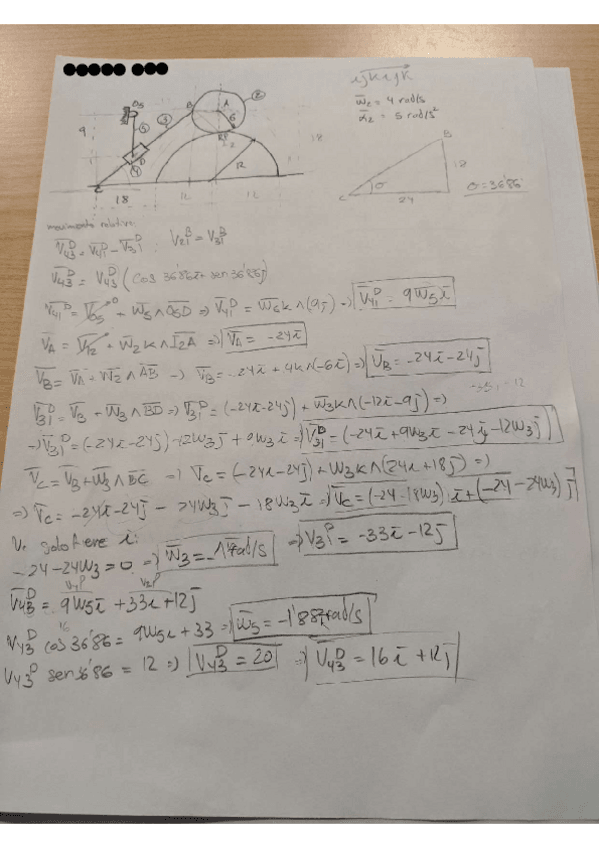 ijkijk
ω̄₂ = 4 rad/s
ᾱ₂ = 5 rad/s²
O₅ B A 2
5 3 6
9 D 12 18
4
C 18 12 12
B
18
C σ 24
σ = 36'86
movimiento relativo:
V̄₄₃ᴰ = V̄₄₁ᴰ - V̄₃₁ᴰ : V̄₂₁ᴮ = V̄₃₁ᴮ
V̄₄₃ᴰ = V̄₄₃ᴰ (cos 36'86i + sen 36'86j)
V̄₄₁ᴰ = V̄₀₅⁰ + ω̄₅ ∧ O₅D ⇒ V̄₄₁ᴰ = ω̄₅k ∧ (9j) ⇒ V̄₄₁ᴰ = 9ω̄₅ī
V̄A = V̄I₂ + ω̄₂k ∧ I₂A ⇒ V̄A = -24ī
V̄B = V̄A + ω̄₂ ∧ AB → V̄B = -24ī + 4k∧(-6ī) ⇒ V̄B = -24ī - 24j
V̄₃₁ᴰ = V̄B + ω̄₃ ∧ BD ⇒ V̄₃₁ᴰ = (-24ī-24j) + ω̄₃k∧(-12ī-9j) ⇒
→ V̄₃₁ᴰ = (-24ī-24j) -12ω₃j + 9ω₃ī ⇒ V̄₃₁ᴰ = (-24ī + 9ω₃ī - 24j - 12ω₃j)
V̄C = V̄B + ω̄₃ ∧ BC ⇒ V̄C = (-24ī-24j) + ω₃k∧(24ī+18j) ⇒
⇒ V̄C = -24ī-24j - 24ω₃j - 18ω₃ī ⇒ V̄C = (-24-18ω₃)ī + (-24-24ω₃)j
Vc solo tiene i:
-24-24ω₃ = 0 ⇒ ω̄₃ = -1rad/s ⇒ V₃₁ᴰ = -33ī - 12j
V̄₄₃ᴰ = 9ω₅ī + 33ī + 12j
V₄₃ᴰ cos 36'86 = 9ω₅i + 33 ⇒ ω̄₅ = -1'887rad/s
16
V₄₃ᴰ sen36'86 = 12 ⇒ V₄₃ᴰ = 20 ⇒ V̄₄₃ᴰ = 16ī + 12j